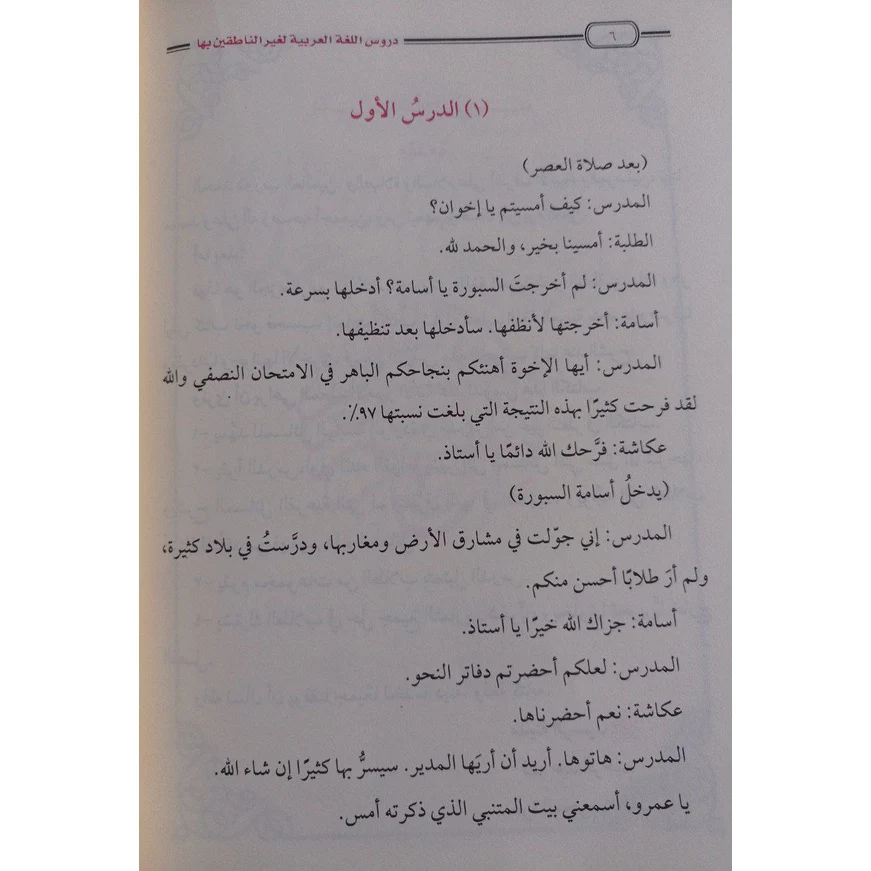 ٦
دروس اللغة العربية لغير الناطقين بها
(١) الدرسُ الأول
(بعد صلاة العصر)
المدرس: كيف أمسيتم يا إخوان؟
الطلبة: أمسينا بخير، والحمد لله.
المدرس: لم أخرجتَ السبورة يا أسامة؟ أدخلها بسرعة.
أسامة: أخرجتها لأنظفها. سأدخلها بعد تنظيفها.
المدرس: أيها الإخوة أهنئكم بنجاحكم الباهر في الامتحان النصفي والله
لقد فرحت كثيرًا بهذه النتيجة التي بلغت نسبتها ٩٧٪.
عكاشة: فرَّحك الله دائمًا يا أستاذ.
(يدخلُ أسامة السبورة)
المدرس: إني جوّلت في مشارق الأرض ومغاربها، ودرَّستُ في بلاد كثيرة،
ولم أرَ طلابًا أحسن منكم.
أسامة: جزاك الله خيرًا يا أستاذ.
المدرس: لعلكم أحضرتم دفاتر النحو.
عكاشة: نعم أحضرناها.
المدرس: هاتوها. أريد أن أريَها المدير. سيسرُّ بها كثيرًا إن شاء الله.
يا عمرو، أسمعني بيت المتنبي الذي ذكرته أمس.